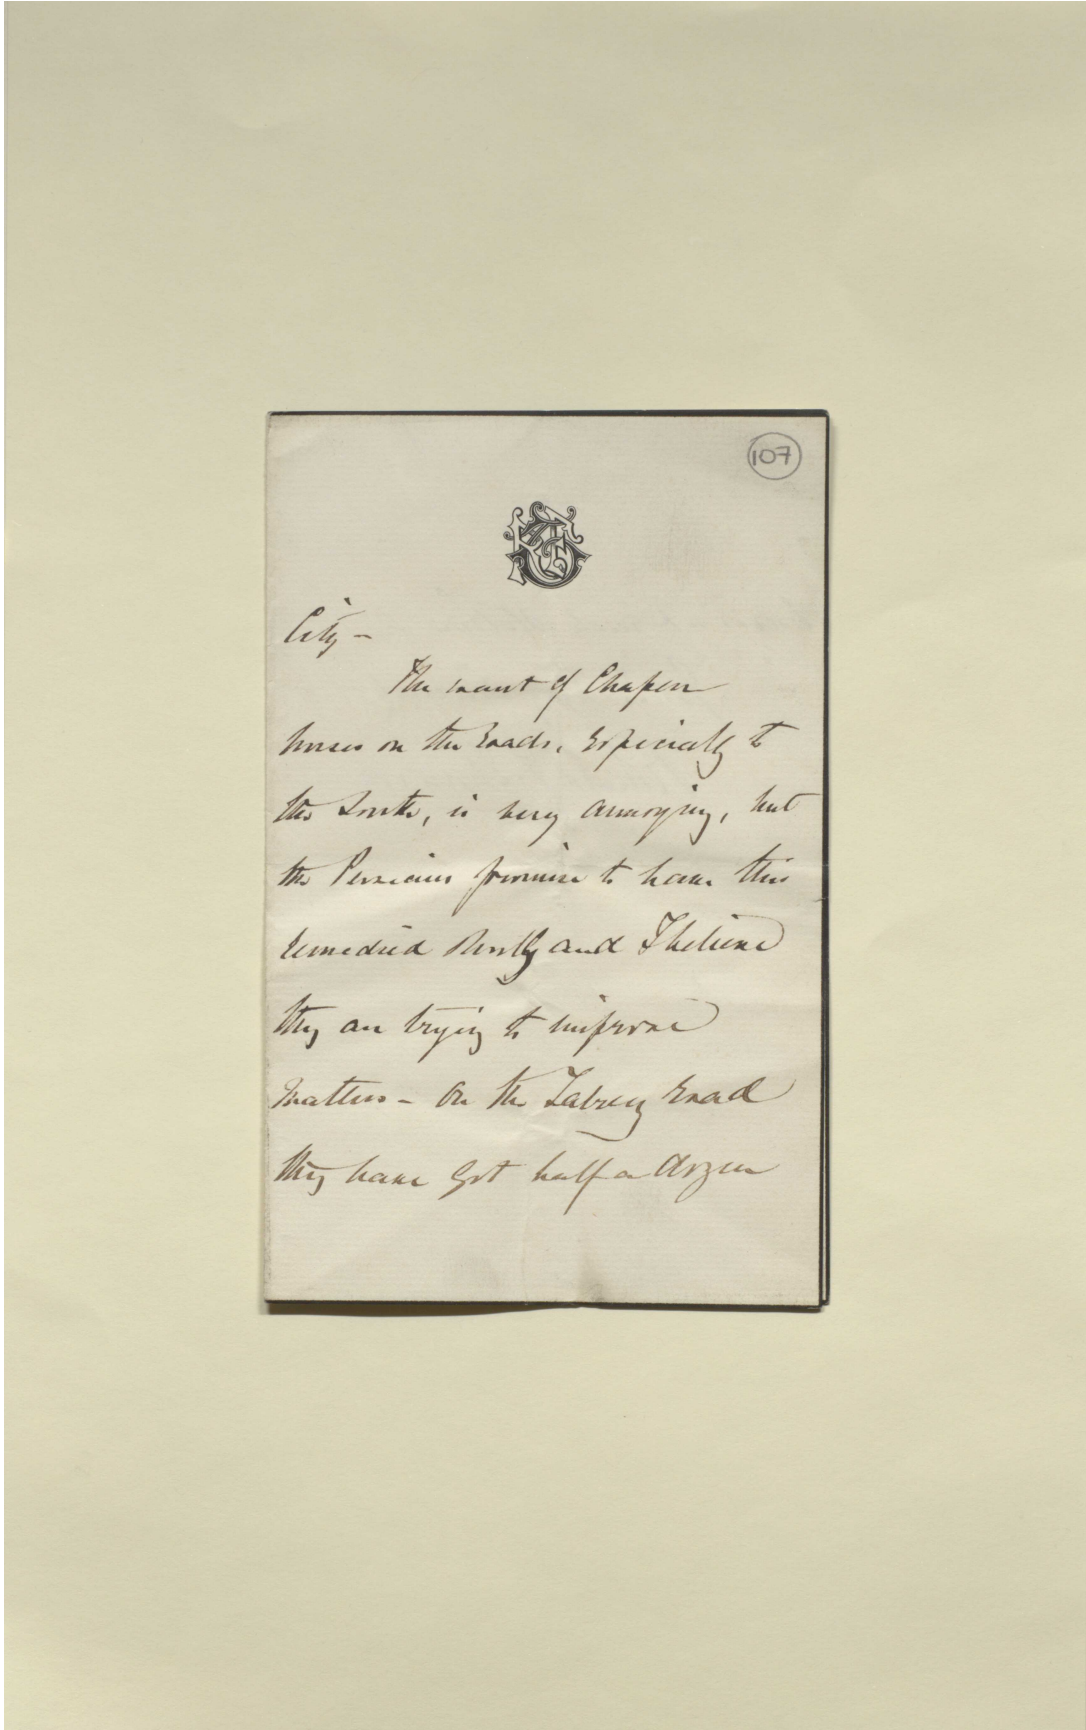 107
City -
The want of Chaperr
horses on the roads, especially to
the South, is very annoying, but
the Persians promise to have this
remedied shortly and I believe
they are trying to improve
matters - On the Tabreez road
they have got half a dozen